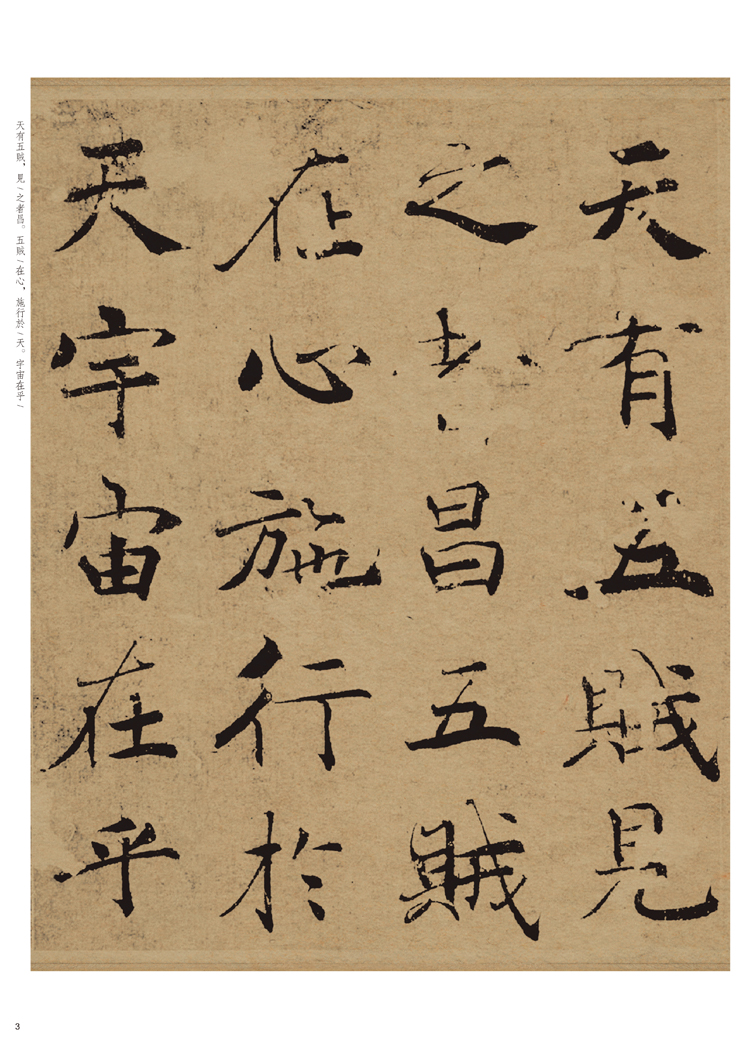 天有五賊見
之者昌五賊
在心施行於
天宇宙在乎
天有五賊，見/之者昌。五賊/在心，施行於/天。宇宙在乎/
3